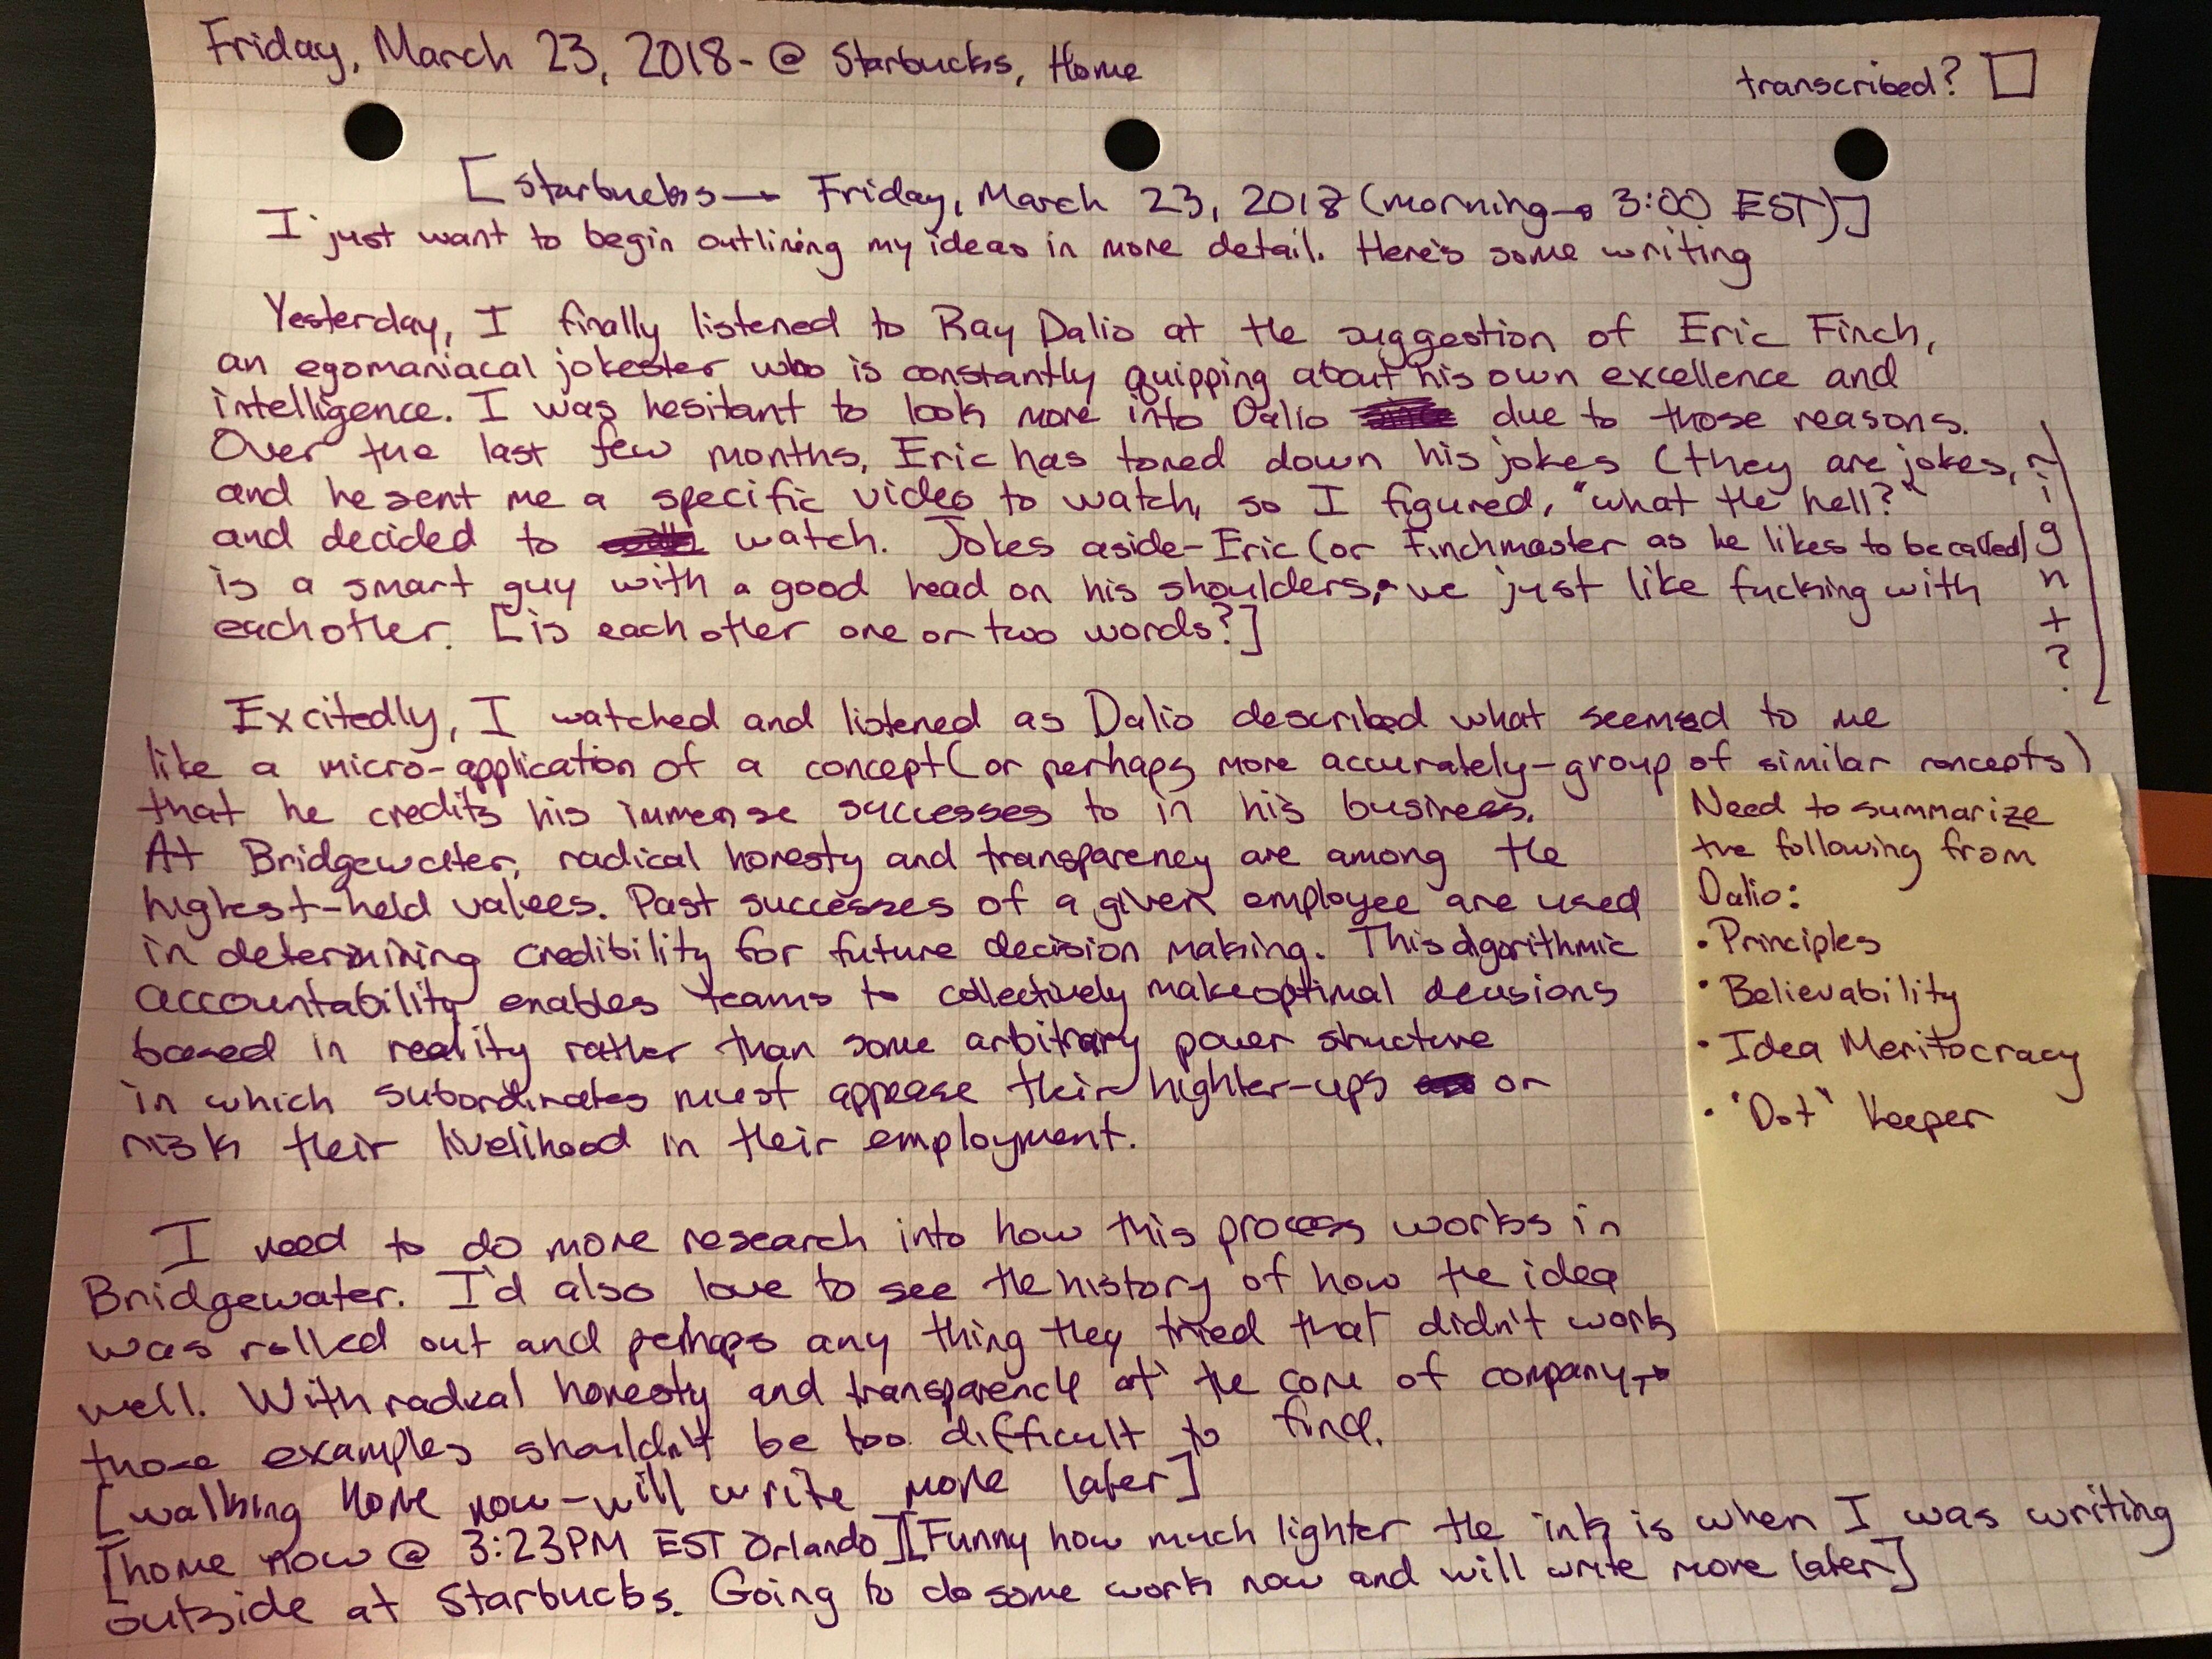 Friday, March 23, 2018- @ Starbucks, Home
transcribed? ☐
[Starbucks→ Friday, March 23, 2018 (morning→ 3:00 EST)]
I just want to begin outlining my ideas in more detail. Here's some writing
Yesterday, I finally listened to Ray Dalio at the suggestion of Eric Finch,
an egomaniacal jokester who is constantly quipping about his own excellence and
intelligence. I was hesitant to look more into Dalio due to those reasons.
Over the last few months, Eric has toned down his jokes (they are jokes, right?)
and he sent me a specific video to watch, so I figured, "what the hell?"
and decided to watch. Jokes aside-Eric (or Finchmaster as he likes to be called)
is a smart guy with a good head on his shoulders, we just like fucking with
eachother. [is each other one or two words?]
Excitedly, I watched and listened as Dalio described what seemed to me
like a micro-application of a concept (or perhaps more accurately-group of similar concepts)
that he credits his immense successes to in his business.
At Bridgewater, radical honesty and transparency are among the
highest-held values. Past successes of a given employee are used
in determining credibility for future decision making. This algorithmic
accountability enables teams to collectively make optimal decisions
based in reality rather than some arbitrary power structure
in which subordinates must appease their higher-ups or
risk their livelihood in their employment.
Need to summarize
the following from
Dalio:
• Principles
• Believability
• Idea Meritocracy
• "Dot" Keeper
I need to do more research into how this process works in
Bridgewater. I'd also love to see the history of how the idea
was rolled out and perhaps any thing they tried that didn't work
well. With radical honesty and transparency at the core of company→
those examples shouldn't be too difficult to find.
[walking home now-will write more later]
[home now @ 3:23PM EST Orlando][Funny how much lighter the ink is when I was writing
outside at Starbucks. Going to do some work now and will write more later]